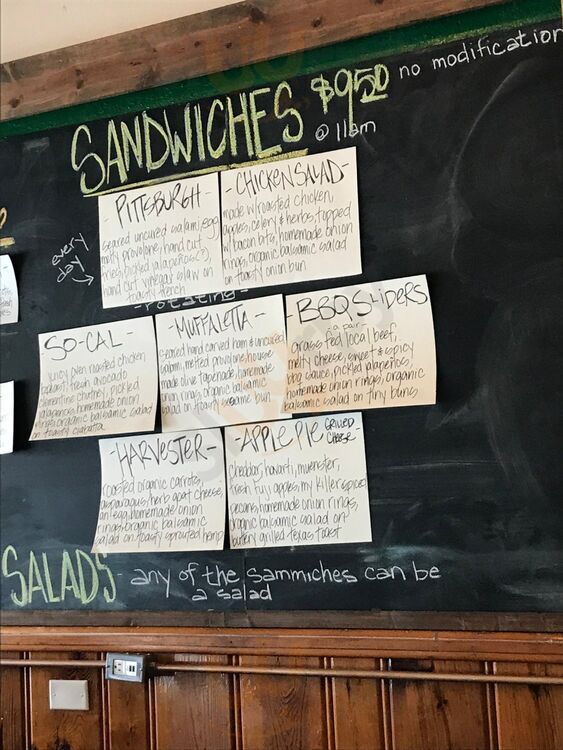 SANDWICHES $9.50 no modification
@ 11am
every day
-PITTSBURGH-
seared uncured salami, egg,
melty provolone, hand cut
fries, pickled jalapeños(?)
hand cut vinegar slaw on
toasty french
-CHICKEN SALAD-
made w/roasted chicken,
apples, celery & herbs, topped
w/bacon bits, homemade onion
rings, organic balsamic salad
on toasty onion bun
-rotating-
-SO-CAL-
juicy oven roasted chicken
breast, fresh avocado
clementine chutney, pickled
jalapenos, homemade onion
rings, organic balsamic salad
on toasty ciabatta
-MUFFALETTA-
seared hand carved ham & uncured
salami, melted provolone, house
made olive tapenade, homemade
onion rings, organic balsamic
salad on toasty sesame bun
-BBQ SLIDERS
-a pair-
grass fed local beef,
melty cheese, sweet & spicy
bbq sauce, pickled jalapeños,
homemade onion rings, organic
balsamic salad on tiny buns
-HARVESTER-
roasted organic carrots,
asparagus, herb goat cheese,
an egg, homemade onion
rings, organic balsamic
salad on toasty sprouted hemp
-APPLE PIE GRILLED CHEESE-
cheddar, havarti, muenster,
fresh fuji apples, my killer spiced
pecans, homemade onion rings,
organic balsamic salad on
buttery grilled texas toast
SALADS- any of the sammiches can be
a salad